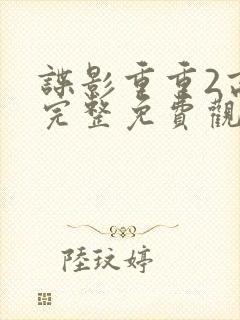 諜影重重2高
完整免費觀
陸玟婷